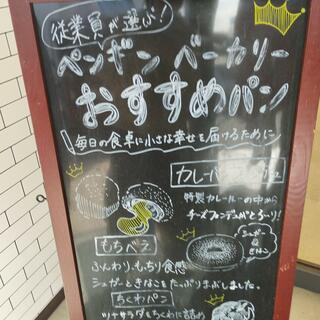 従業員が選ぶ！
ペンギンベーカリー
おすすめパン
毎日の食卓に小さな幸せを届けるために
カレーパン
特製カレールーの中から
チーズフォンデュがとろーり！
シュガー
&
きなこ
もちベラ
ふんわり、もちり食感
シュガーときなこをたっぷりまぶしました。
ちくわパン
ツナサラダをちくわに詰め